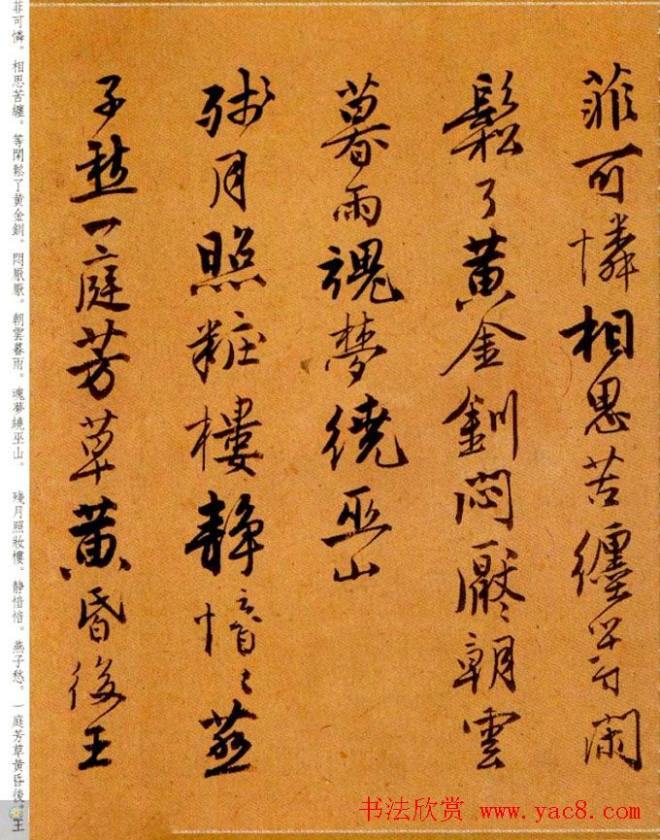 菲可憐相思苦纏等閑
鬆了黃金釧悶厭〻朝雲
暮雨魂夢繞巫山
殘月照粧樓靜愔〻燕
子愁一庭芳草黃昏後王
菲可憐。相思苦纏。等閑鬆了黃金釧。悶厭厭。朝雲暮雨。魂夢繞巫山。　殘月照妝樓。靜愔愔。燕子愁。一庭芳草黃昏後。王
书法欣赏 www.yac8.com